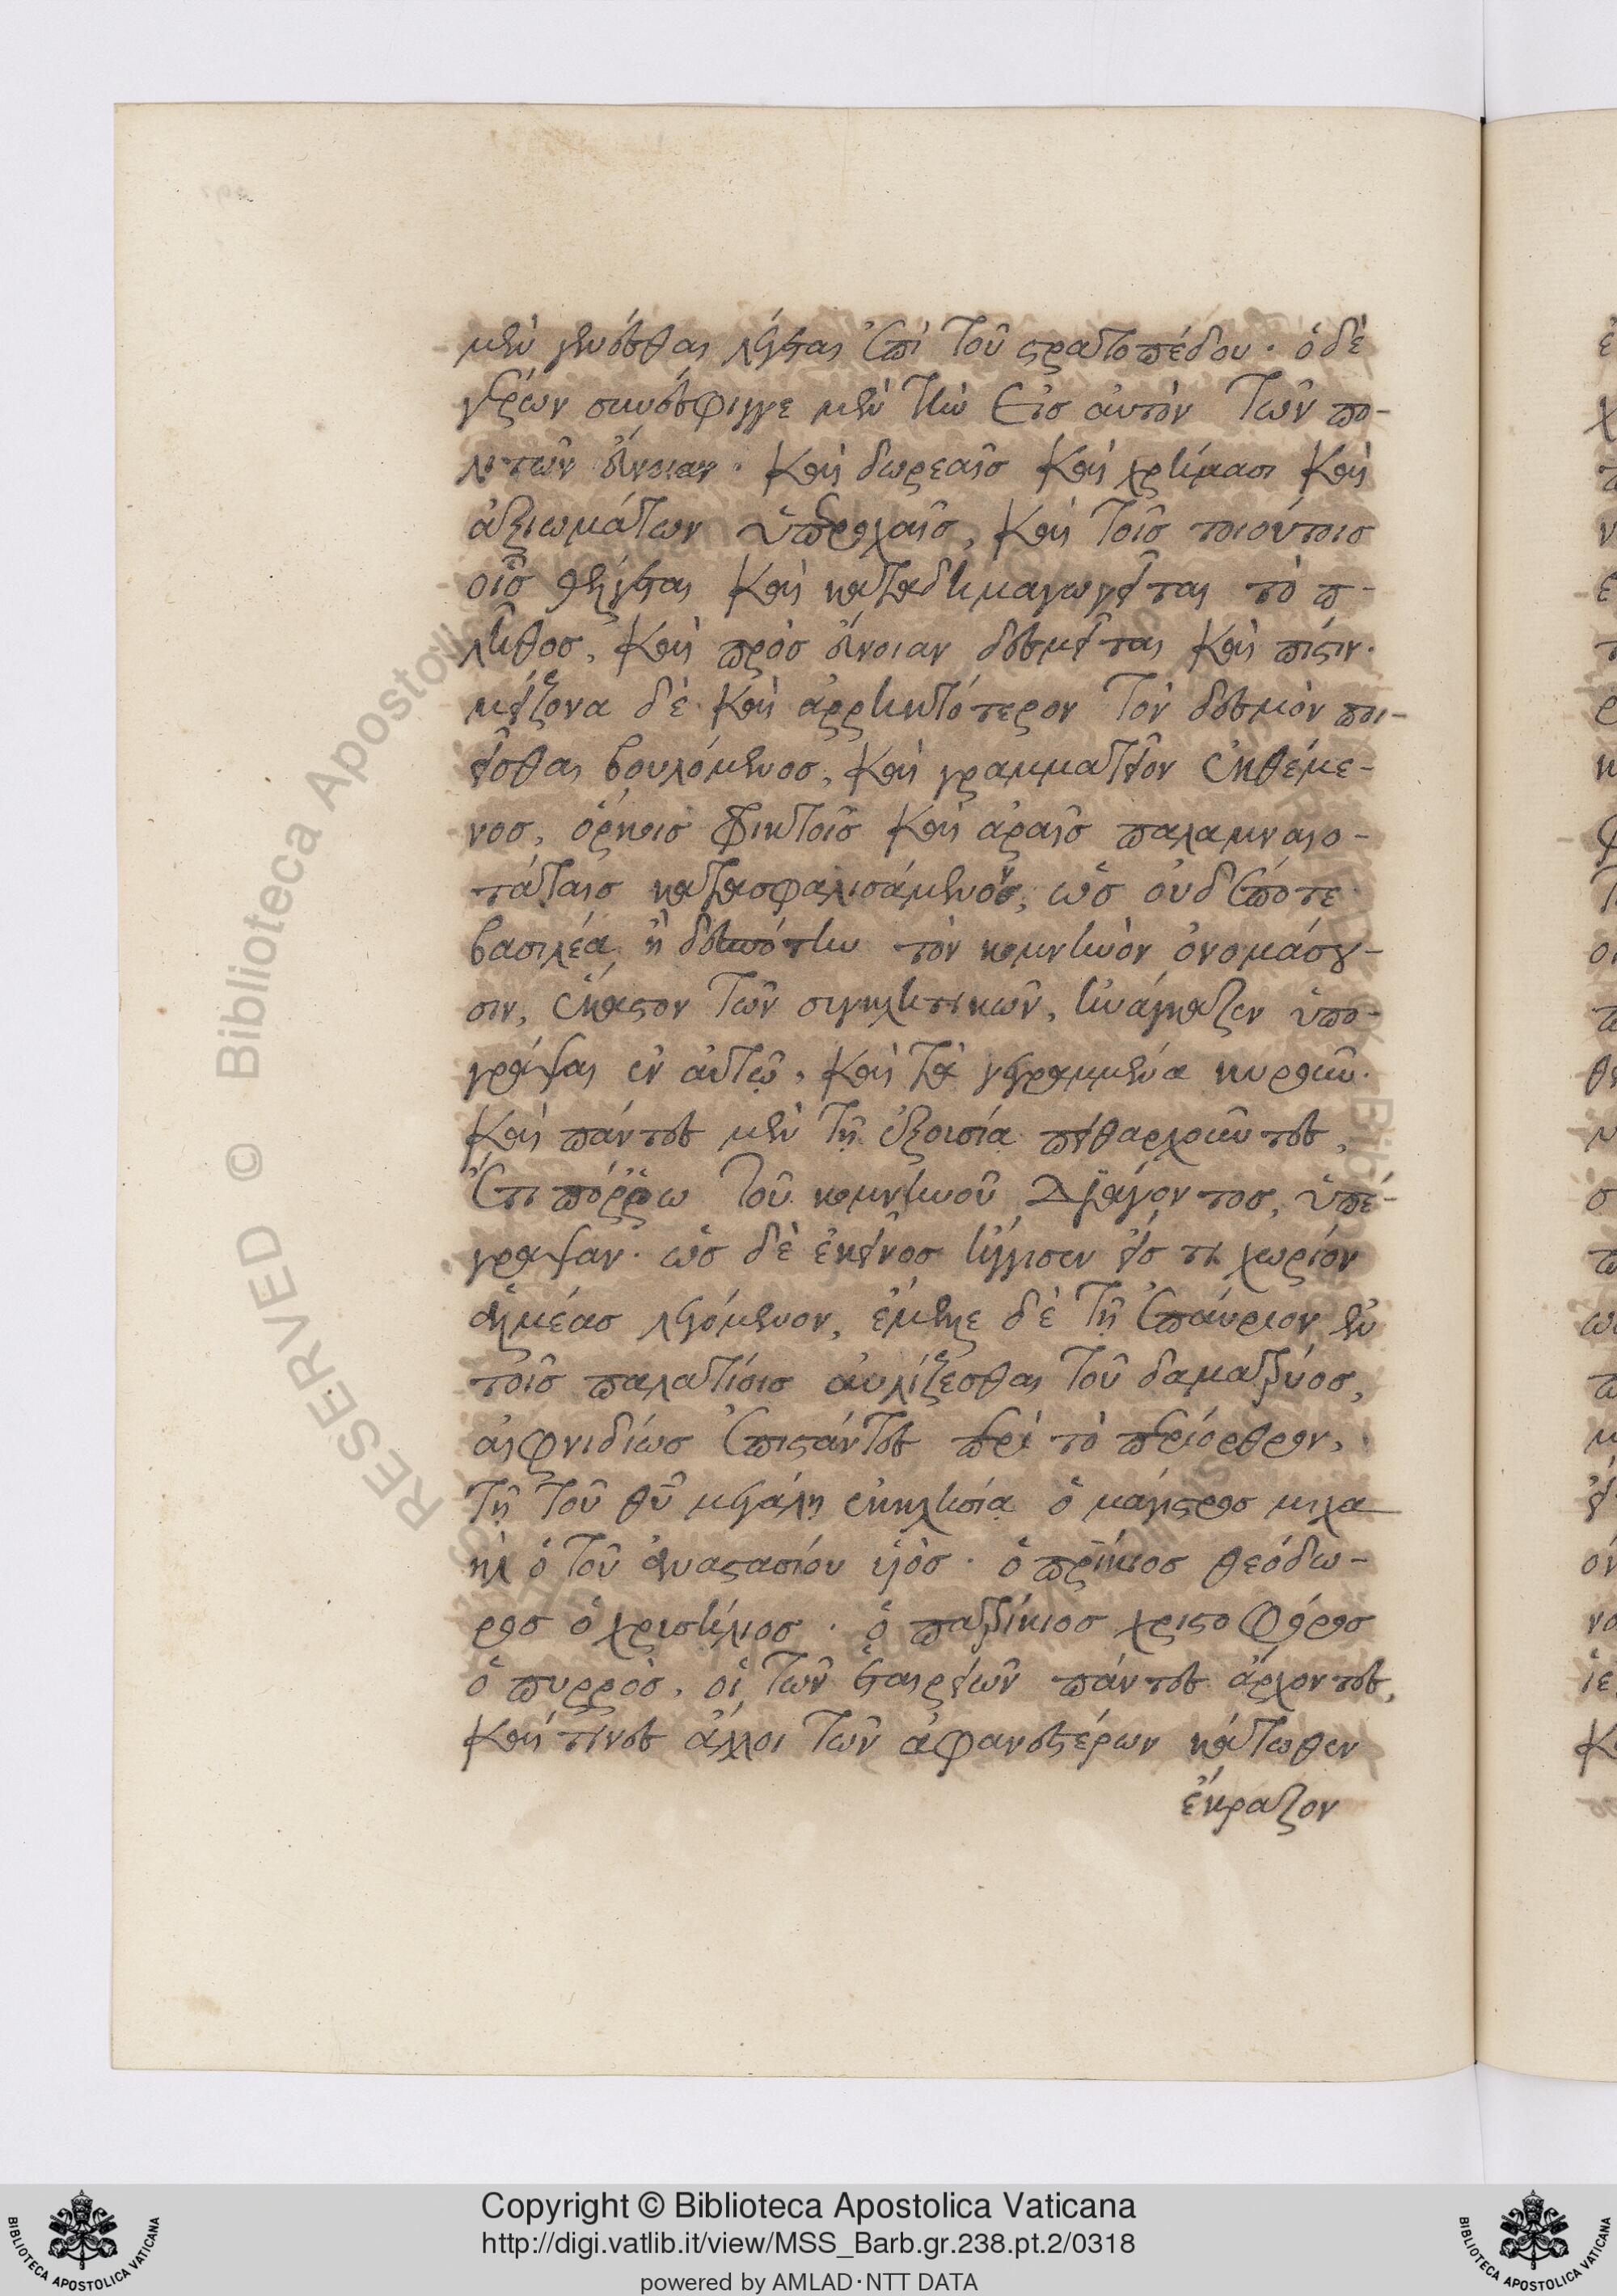 μὲν γενέσθαι λέγεται ἐπὶ τοῦ στρατοπέδου. ὁ δὲ
γέρων συνέσφιγγε μὲν τὴν εἰς αὐτὸν τῶν πο-
λιτῶν εὔνοιαν. καὶ δωρεαῖς καὶ χρήμασι καὶ
ἀξιωμάτων ὑπεροχαῖς, καὶ τοῖς τοιούτοις
οἷς θέλγεται καὶ καταδημαγωγεῖται τὸ π-
λῆθος, καὶ πρὸς εὔνοιαν δεσμεῖται καὶ πίστιν.
μείζονα δὲ καὶ ἀρρηκτότερον τὸν δεσμὸν ποι-
εῖσθαι βουλόμενος, καὶ γραμματεῖον ἐκθέμε-
νος, ὅρκοις φικτοῖς καὶ ἀραῖς παλαμναιο-
τάταις κατασφαλισάμενος, ὡς οὐδέποτε
βασιλέα ἢ δεσπότην τὸν κομνηνὸν ὀνομάσει-
σιν, ἕκαστον τῶν συγκλητικῶν, ἠνάγκαζεν ὑπο-
γράψαι ἐν αὐτῷ, καὶ τὰ γεγραμμένα κυροῦν.
καὶ πάντες μὲν τῇ ἐξουσίᾳ πειθαρχοῦντες,
ἔτι πόρρω τοῦ κομνηνοῦ διάγοντος, ὑπέ-
γραψαν. ὡς δὲ ἐκεῖνος ἤγγισεν εἴς τι χωρίον
ἀλμέας λεγόμενον, ἔμελλε δὲ τῇ ἐπαύριον ἐν
τοῖς παλατίοις αὐλίζεσθαι τοῦ δαματρύος,
αἰφνιδίως ἐπιστάντες περὶ τὸ περίορθρον,
τῇ τοῦ θυ μεγάλῃ ἐκκλησίᾳ ὁ μάγιστρος μιχα
ὴλ ὁ τοῦ ἀναστασίου υἱός. ὁ πρίκιος θεόδω-
ρος ὁ χρυσήλιος. ὁ πατρίκιος χριστοφόρος
ὁ πυρρὸς, οἱ τῶν ἑταιρειῶν πάντες ἄρχοντες,
καί τινες ἄλλοι τῶν ἀφανεστέρων κάτωθεν
ἔκραζον
Copyright © Biblioteca Apostolica Vaticana
http://digi.vatlib.it/view/MSS_Barb.gr.238.pt.2/0318
powered by AMLAD·NTT DATA